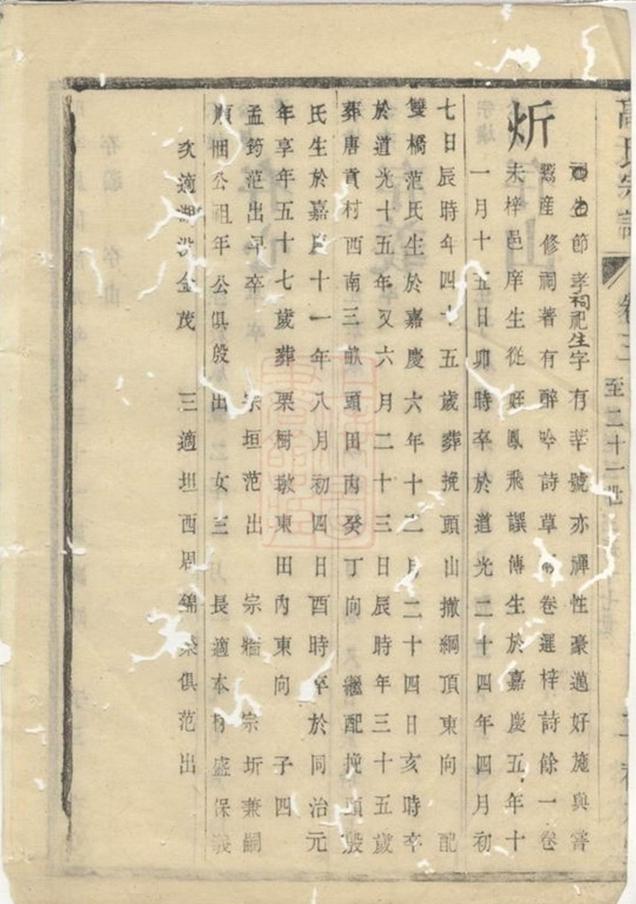 高氏宗譜 卷三 至二十一世
炘
節孝祠祀生字有莘號亦禪性豪邁好施與嘗
產修祠著有醉吟詩草 卷選梓詩餘一卷
未梓邑庠生從姪鳳飛譔傳生於嘉慶五年十
一月十五日卯時卒於道光二十四年四月初
七日辰時年四十五歲葬挽頭山撒網頂東向 配
雙橋范氏生於嘉慶六年十二月二十四日亥時卒
於道光十五年又六月二十三日辰時年三十五歲
葬唐貢村西南三畝頭田丙癸丁向 繼配挽頭殷
氏生於嘉慶十一年八月初四日酉時卒於同治元
年享年五十七歲葬栗樹墩東田內東向 子四
孟筠范出早卒 宗垣范出 宗墻 宗圻兼嗣
順梱公祖年公俱殷出 女三 長適本村盛保義
次適湖㳇金茂 三適坦西周錦 俱范出